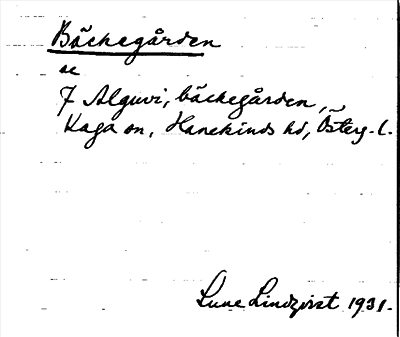 Bäckegården
se
7 Alguvi, bäckegården,
Kaga sn, Hanekinds hd, Österg. l.
Sune Lindqvist 1931.